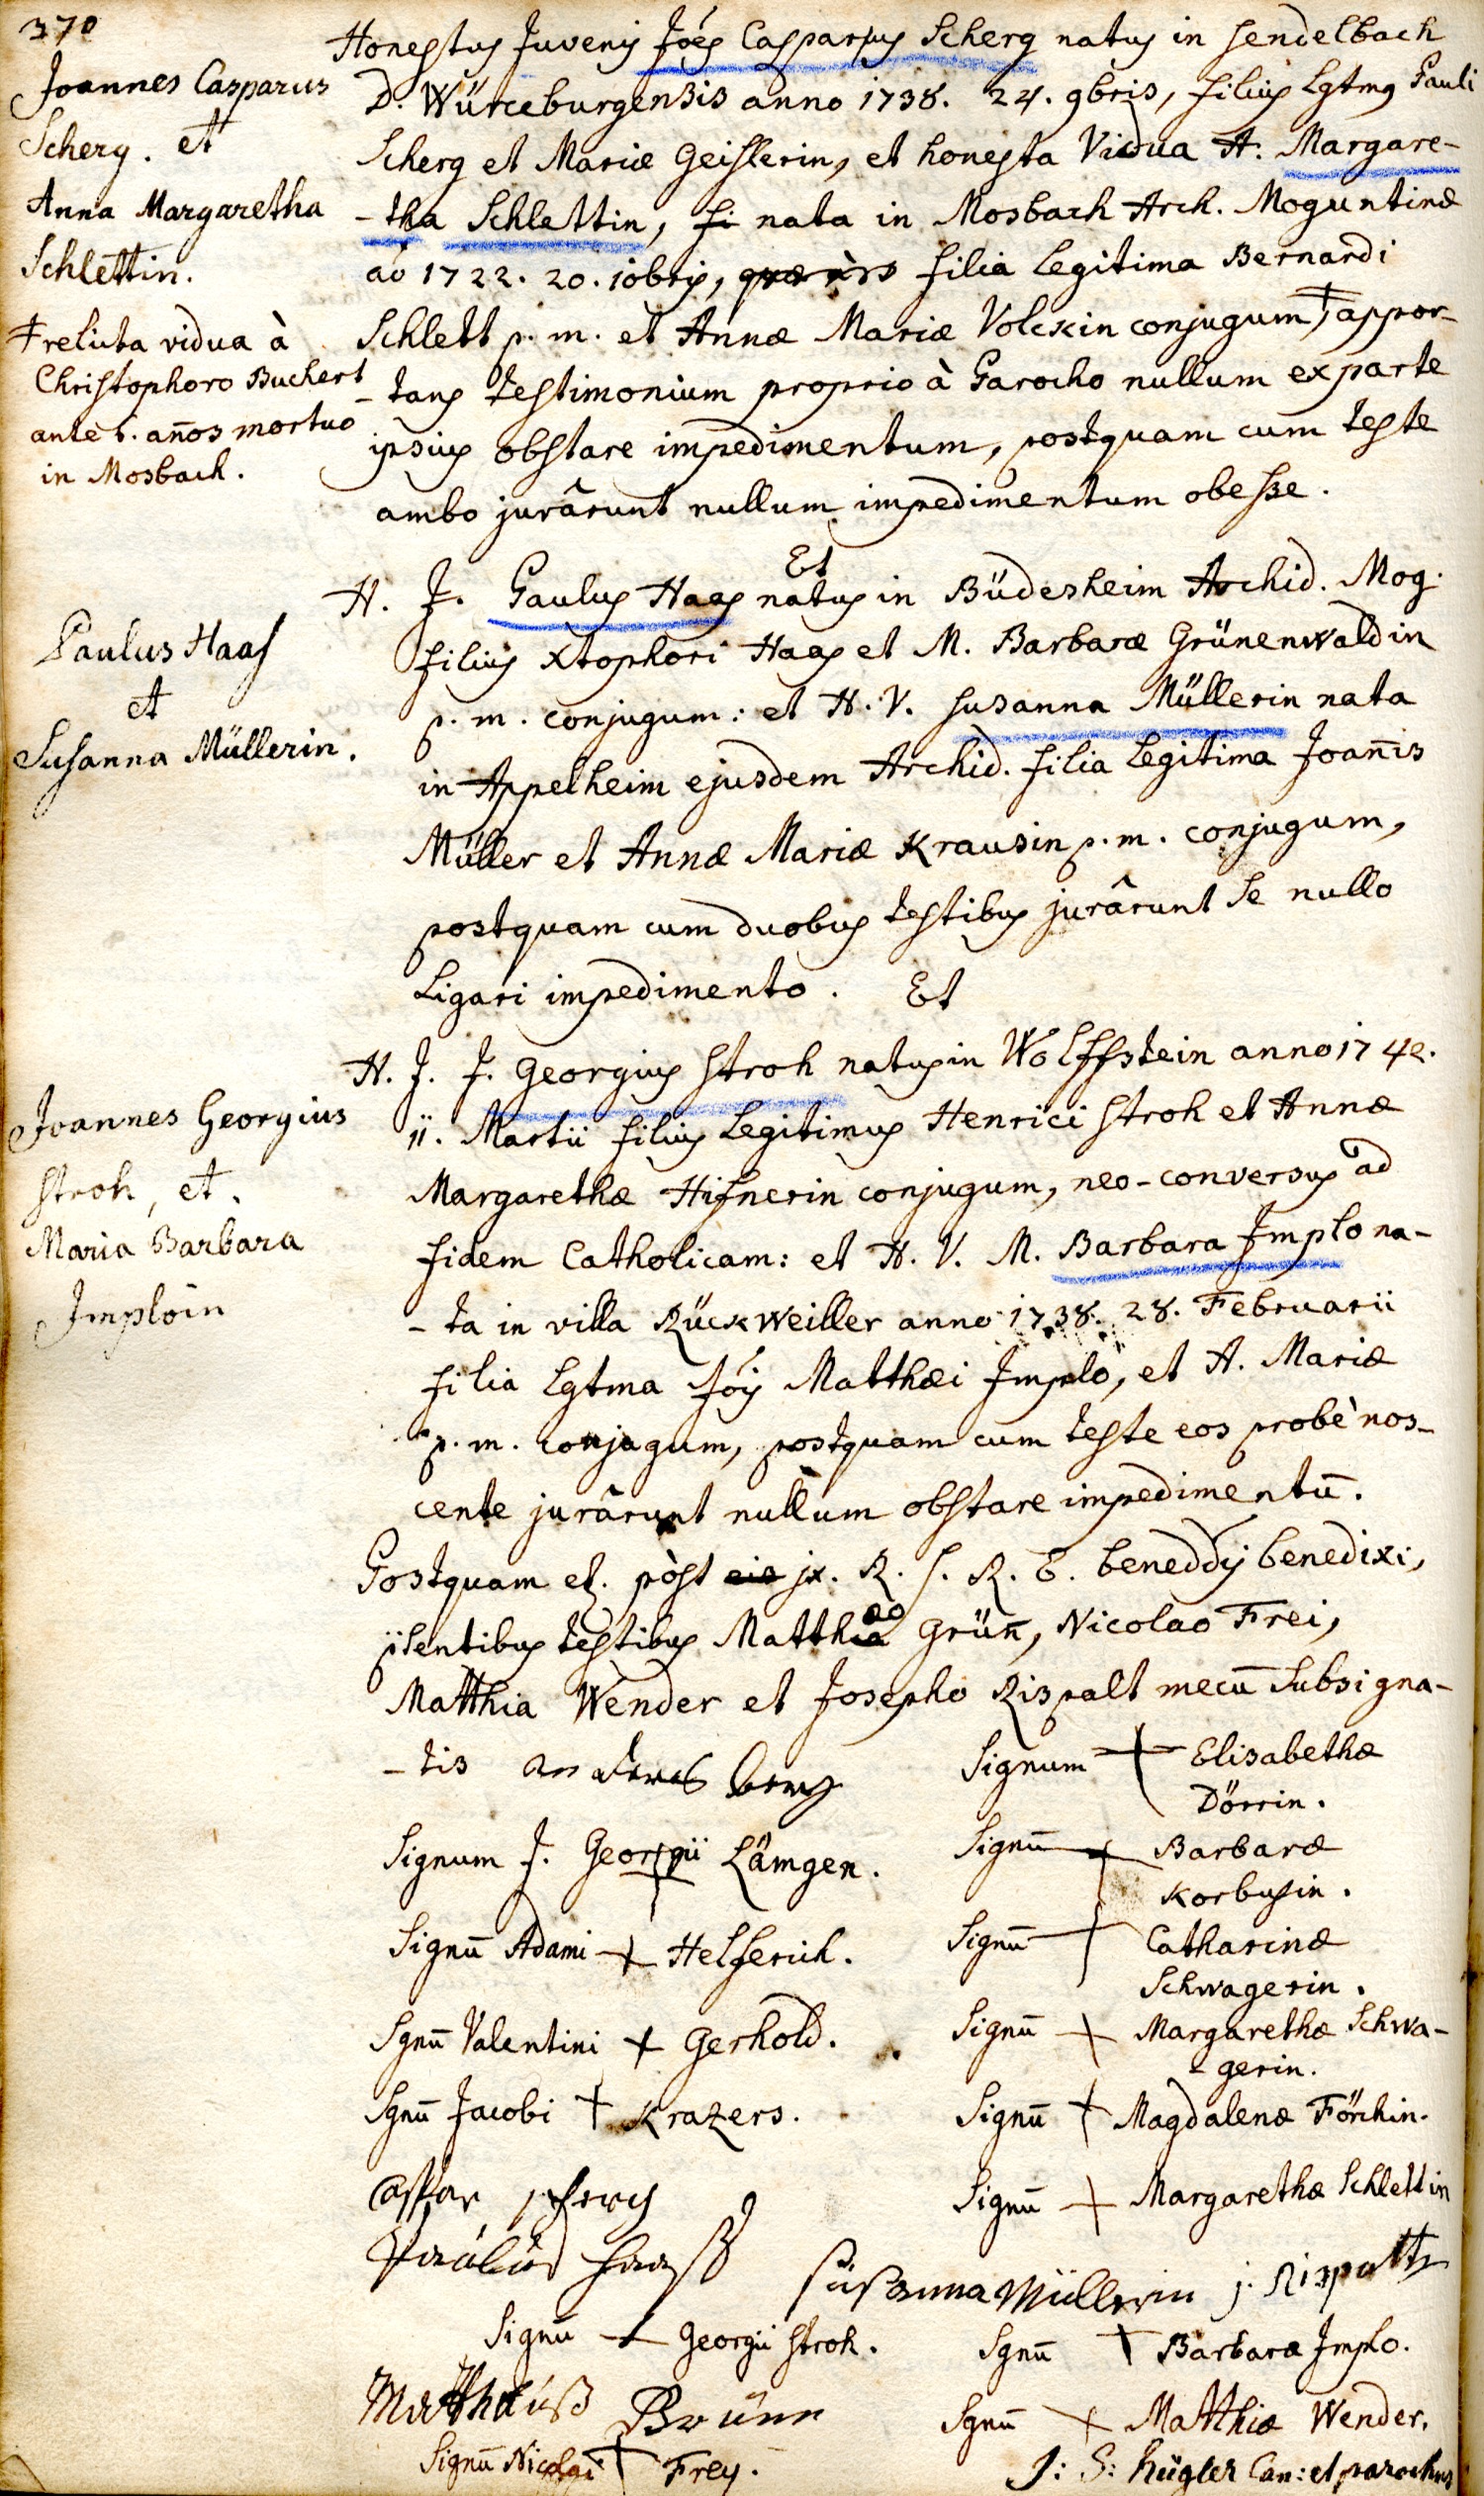 370
Joannes Casparus
Scherg. et
Anna Margaretha
Schlettin.
† relicta vidua à
Christophoro Buchert
ante 6. años mortuo
in Mosbach.
Honestus Juvenis Jóes Casparsus Scherg natus in Sendelbach
D. Würceburgensis anno 1738. 24. 9bris, filius Lgtmg Pauli
Scherg et Mariæ Geislerin, et honesta Vidua A. Margare-
-tha Schlettin, fi nata in Mosbach Arch. Moguntinæ
aó 1722. 20. 10bris, filia legitima Bernardi
Schlett p. m. et Annæ Mariæ Volckin conjugum, † appor-
-tans testimonium proprio à Parocho nullum ex parte
ipsius obstare impedimentum, postquam cum teste
ambo jurârunt nullum impedimentum obesse.
Et
Paulus Haas
et
Susanna Müllerin.
H. J. Paulus Haas natus in Büdesheim Archid. Mog.
filius Xtophori Haas et M. Barbaræ Grünenwaldin
p. m. conjugum: et H. V. Susanna Müllerin nata
in Appelheim ejusdem Archid. filia legitima Joanīs
Müller et Annæ Mariæ Krausin p. m. conjugum,
postquam cum duobus testibus jurârunt se nullo
Ligari impedimento. Et
Joannes Georgius
Stroh, et.
Maria Barbara
Imploin
H. J. J. Georgius Stroh natus in Wolffstein anno 1742.
11. Martii filius Legitimus Henrici Stroh et Annæ
Margarethæ Hifnerin conjugum, neo-conversus ad
fidem Catholicam: et H. V. M. Barbara Implo na-
-ta in villa Rückweiller anno 1738. 28. Februarii
filia Lgtma Jóis Matthæi Implo, et A. Mariæ
p. m. conjugum, postquam cum teste eos probè nos-
cente jurârunt nullum obstare impedimentū.
Postquam et. pòst eis jx. R. S. R. E. beneddis benedixi,
p̈sentibus testibus Matthiæo Grün, Nicolao Frei,
Matthia Wender et Josepho Rispalt mecū subsigna-
-tis
Signum + Elisabethæ
Dörrin.
Signum J. Georgii + Lämgen.
Signū + Barbaræ
Korbusin.
Signū Adami + Helferich.
Signū + Catharinæ
Schwagerin.
Sgnū Valentini + Gerhold.
Signū + Margarethæ Schwa-
-gerin.
Sgnū Jacobi + Krazers.
Signū + Magdalenæ Förchin.
Casspar scherg
Signū + Margarethæ Schlettin
Paulus Haaß
Susanna Müllerin j. Rispaltt
Signū + Georgii Stroh.
Sgnū + Barbaræ Implo.
Matthäuß Brünn
Sgnū + Matthiæ Wender.
Signū Nicolai + Frey.
J: S: Hügler Can: et parochus